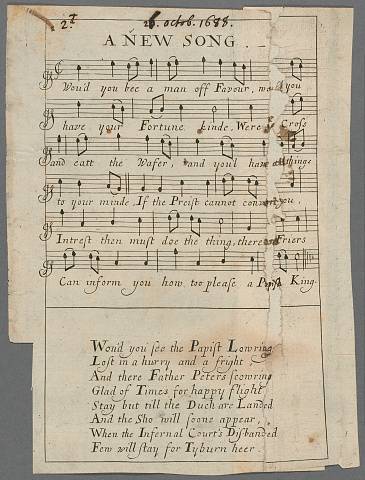 26. octob. 1688.
A NEW SONG
Wou'd you bee a man off Favour, would you
have your Fortune kinde, Weres Cross
and eatt the Wafer, and you'l have all things
to your minde, If the Preist cannot convert you,
Intrest then must doe the thing, theres Friers
Can inform you how too please a Papist King.
Wou'd you see the Papist Lowring
Lost in a hurry and a fright
And there Father Peters scowring
Glad of Times for happy flight
Stay but till the Duch are Landed
And the Sho will soone appear,
When the Infernal Court's Disbanded
Few will stay for Tyburn heer.